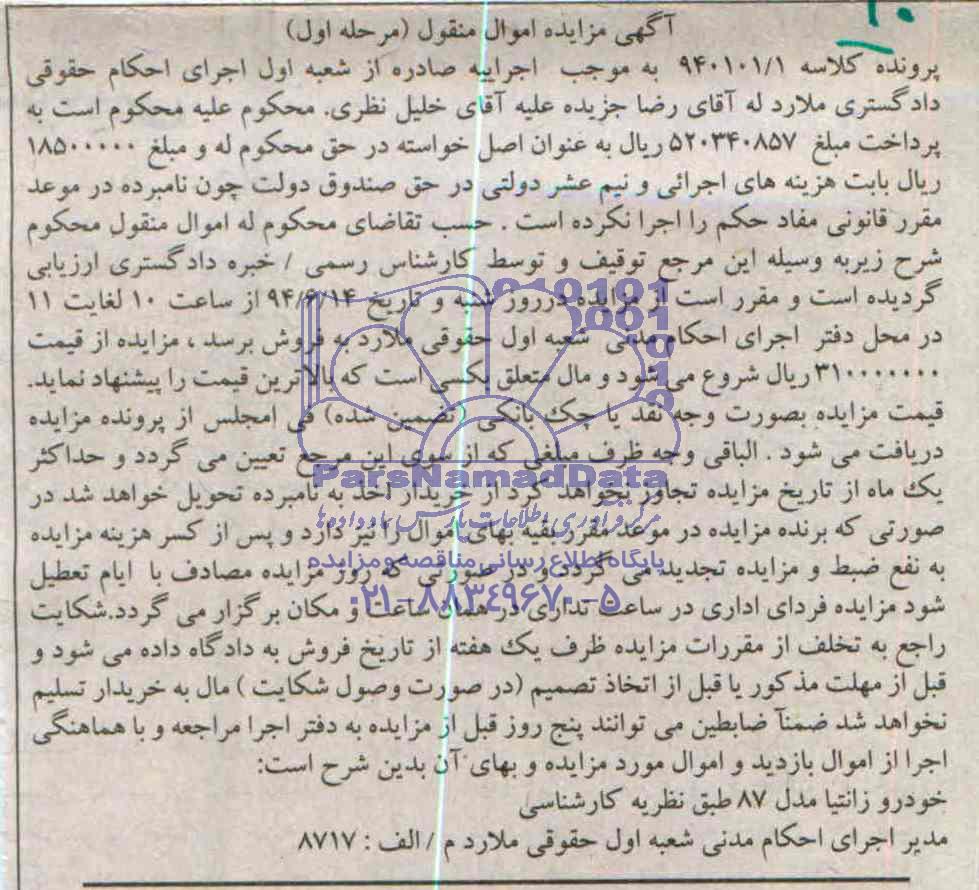 ۱۰
آگهی مزایده اموال منقول (مرحله اول)
پرونده کلاسه ۹۴۰۱۰۱/۱ به موجب اجراییه صادره از شعبه اول اجرای احکام حقوقی
دادگستری ملارد له آقای رضا جزیده علیه آقای خلیل نظری. محکوم علیه محکوم است به
پرداخت مبلغ ۵۲۰۳۴۰۸۵۷ ریال به عنوان اصل خواسته در حق محکوم له و مبلغ ۱۸۵۰۰۰۰۰
ریال بابت هزینه های اجرائی و نیم عشر دولتی در حق صندوق دولت چون نامبرده در موعد
مقرر قانونی مفاد حکم را اجرا نکرده است . حسب تقاضای محکوم له اموال منقول محکوم
شرح زیربه وسیله این مرجع توقیف و توسط کارشناس رسمی / خبره دادگستری ارزیابی
گردیده است و مقرر است از مزایده درروز شنبه و تاریخ ۹۴/۶/۱۴ از ساعت ۱۰ لغایت ۱۱
در محل دفتر اجرای احکام مدنی شعبه اول حقوقی ملارد به فروش برسد ، مزایده از قیمت
۳۱۰۰۰۰۰۰۰ ریال شروع می شود و مال متعلق بکسی است که بالاترین قیمت را پیشنهاد نماید.
قیمت مزایده بصورت وجه نقد یا چک بانکی (تضمین شده) فی امجلس از پرونده مزایده
دریافت می شود . الباقی وجه ظرف مبلغی که از سوی این مرجع تعیین می گردد و حداکثر
یک ماه از تاریخ مزایده تجاوز نخواهد کرد از خریدار اخذ به نامبرده تحویل خواهد شد در
صورتی که برنده مزایده در موعد مقرر بقیه بهای اموال را نیز دارد و پس از کسر هزینه مزایده
به نفع ضبط و مزایده تجدید می گردد و در صورتی که روز مزایده مصادف با ایام تعطیل
شود مزایده فردای اداری در ساعت تداری در همان ساعت و مکان برگزار می گردد.شکایت
راجع به تخلف از مقررات مزایده ظرف یک هفته از تاریخ فروش به دادگاه داده می شود و
قبل از مهلت مذکور یا قبل از اتخاذ تصمیم (در صورت وصول شکایت ) مال به خریدار تسلیم
نخواهد شد ضمنآ ضابطین می توانند پنج روز قبل از مزایده به دفتر اجرا مراجعه و با هماهنگی
اجرا از اموال بازدید و اموال مورد مزایده و بهای آن بدین شرح است:
خودرو زانتیا مدل ۸۷ طبق نظریه کارشناسی
مدیر اجرای احکام مدنی شعبه اول حقوقی ملارد م / الف : ۸۷۱۷
ParsNamadData
مرکز فرآوری اطلاعات پارس نماد داده ها
پایگاه اطلاع رسانی مناقصه و مزایده
۰۲۱-۸۸۳۴۹۶۷۰-۵